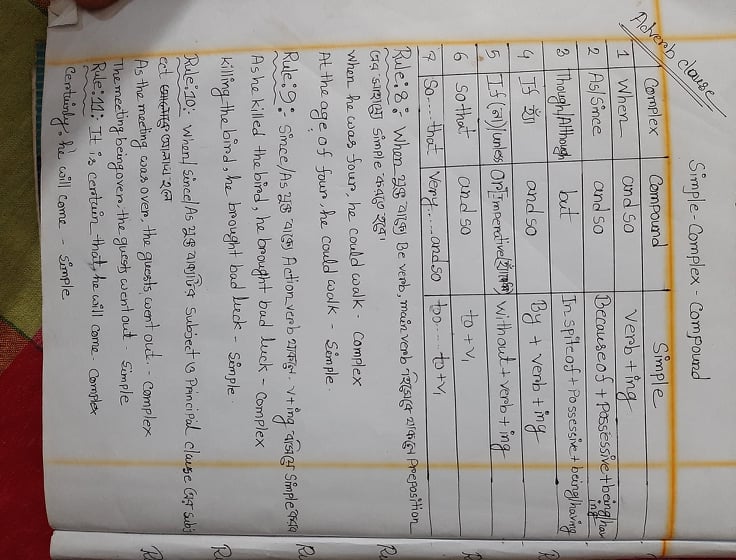 Adverb clause
Simple - Complex - Compound
Complex Compound Simple
1 When and so Verb + ing
2 As/Since and so Because of + Possessive + being/having
3 Though/Although but In spite of + Possessive + being/having
4 If হ্যাঁ and so By + verb + ing
5 If (না)/unless Or/Imperative without + verb + ing
6 so that and so to + V₁
7 So....that Very.....and so too.....to + V₁
Rule: 8:- When যুক্ত বাক্যে Be verb, main verb হিসেবে থাকলে Preposition
এর সাহায্যে simple করতে হবে।
When he was four, he could walk - Complex
At the age of four, he could walk - Simple.
Rule: 9:- Since/As যুক্ত বাক্যে Action verb থাকলে. V+ing বসিয়ে Simple করব
As he killed the bird, he brought bad luck - Complex
Killing the bird, he brought bad luck - Simple.
Rule: 10:- When/Since/As যুক্ত বাক্যটির Subject ও Principal clause এর Subj
ect আলাদা হলে
As the meeting was over, the guests went out. - Complex
The meeting being over, the guests went out - Simple
Rule: 11: It is certain that, he will come. Complex
Certainly, he will come - Simple